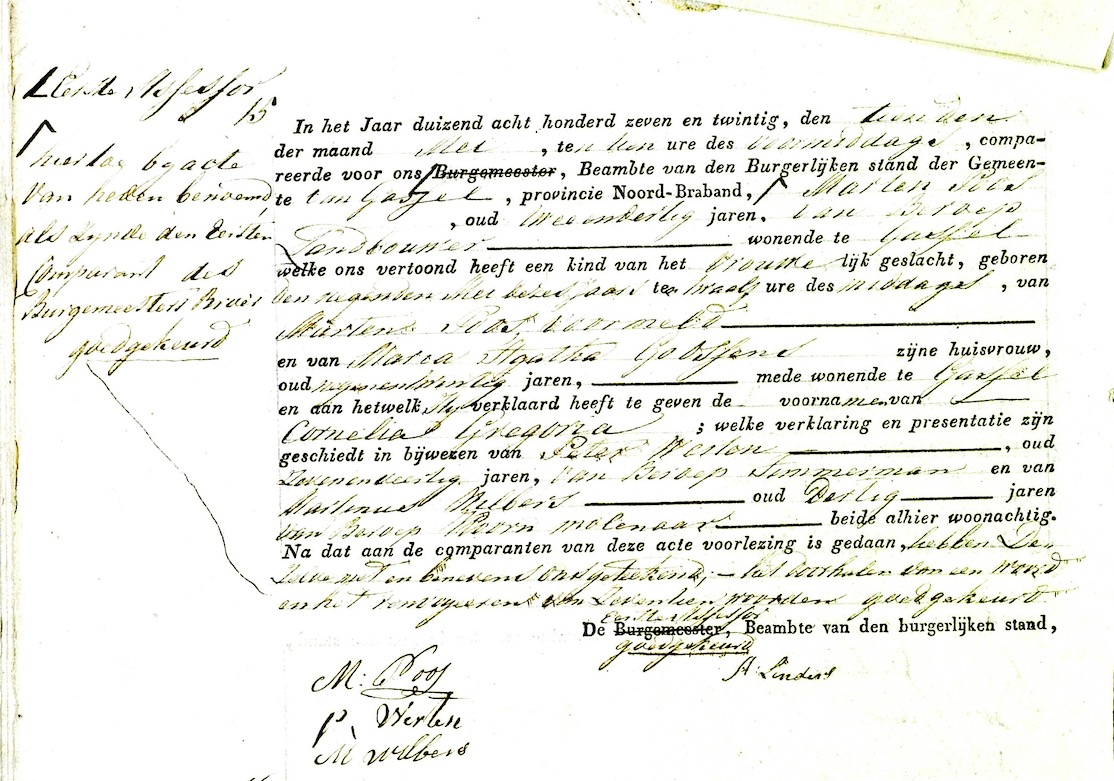 Eerste Assessor
15
hiertoe by acte
van heden benoemd,
als zynde den Eersten
Comparant des
Burgemeesters
goedgekeurd
In het Jaar duizend acht honderd zeven en twintig, den tienden
der maand Mei, ten tien ure des voormiddags, compa-
reerde voor ons Burgemeester, Beambte van den Burgerlijken stand der Gemeen-
te van Gassel, provincie Noord-Braband, Marten Poos
, oud tweeendertig jaren, van Beroep
Landbouwer wonende te Gassel
welke ons vertoond heeft een kind van het vrouwelijk geslacht, geboren
den negenden Mei dezes jaars te twaalf ure des middags, van
Martens Poos, voormeld
en van Maria Agatha Goossens zijne huisvrouw,
oud negenentwintig jaren, mede wonende te Gassel
en aan hetwelk hy verklaard heeft te geven de voorname van
Cornelia Gregoria ; welke verklaring en presentatie zijn
geschiedt in bijwezen van Peter Werten, oud
Zevenendertig jaren, van Beroep Timmerman en van
Martinus Wilbers oud Dertig jaren
van Beroep Koorn molenaar beide alhier woonachtig.
Na dat aan de comparanten van deze acte voorlezing is gedaan, hebben De-
zelve met en benevens ons getekend; het doorhalen van een woord
en het renvoyeeren van Zeventien woorden goedgekeurd.
Eerste Assessor
De Burgemeester, Beambte van den burgerlijken stand,
goedgekeurd
A: Linders
M: Poos
P. Werten
M Wilbers